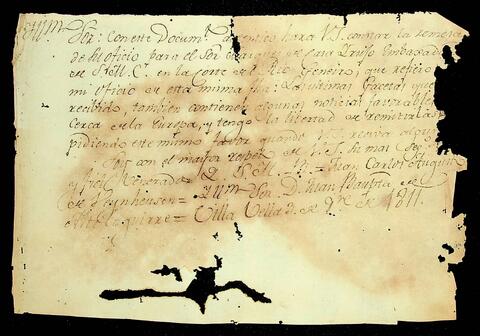 Yllmo
Sor: Con este Docum.to autentico hara V.S. constar la remesa
de el oficio para el Sor Marques de Casa Yrujo Embaxador
de S. M. C. en la corte de el Rio Geneiro, que refiere
mi oficio de esta misma fha: Las ultimas Gacetas que
recibido, tambien contienen algunas noticias favorables
cerca de la Europa, y tengo la libertad de remitirlas
pidiendo este mismo favor quando se reciva algu
Soy con el mayor respeto de V.S. he mas
y fiel Venerador Q. B. S. M. = Juan Carlos Augus
de Heynheusen = Yllmo Sor D. Juan Bautta de
= Villa Vella 2. de 9re de 1811.